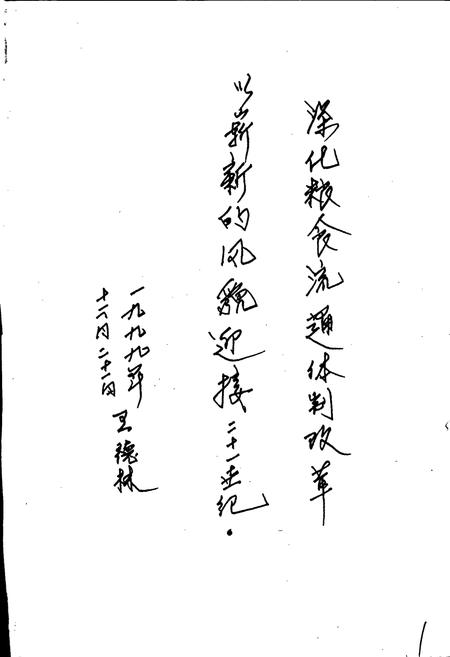 深化粮食流通体制改革
以崭新的风貌迎接二十一世纪.
一九九九年
十二月二十一日
王德林